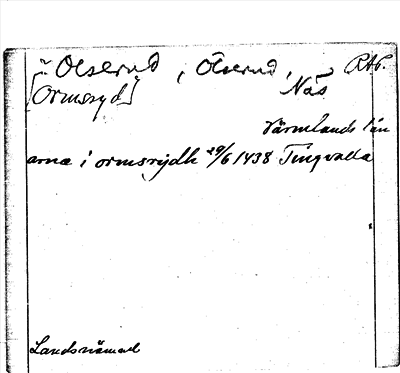 Ölserud, Ölserud, RAP.
[Ormsryd] Näs
Värmlands län
arnæ i ormsrydh 29/6 1438 Tingvalla
Landsnämnd